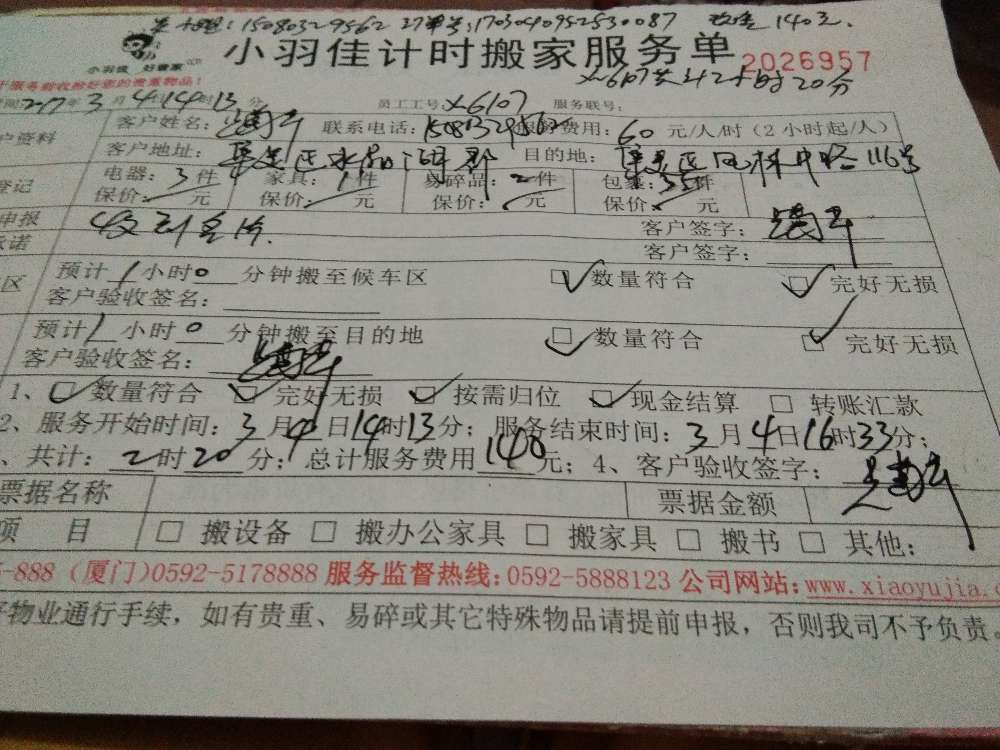 15080329562 订单号:1703040952530087 现金140元.
小羽佳 好管家
小羽佳计时搬家服务单
2026957
X6107共计2小时20分
服务前收捡好您的贵重物品!
时间:2017年3月4日14时13分 员工工号:X6107 服务联号:
户资料 客户姓名: 联系电话:15080329562 服务费用:60元/人/时(2小时起/人)
客户地址:集美区水晶湖郡 目的地:集美区凤林中路116号
登记 电器:3件 家具:1件 易碎品:2件 包裹:35件
保价: 元 保价: 元 保价: 元 保价: 元
申报 收到名片. 客户签字:
承诺 客户签字:
区 预计1小时0分钟搬至候车区 数量符合 完好无损
客户验收签名:
预计1小时0分钟搬至目的地 数量符合 完好无损
客户验收签名:
1、数量符合 完好无损 按需归位 现金结算 转账汇款
2、服务开始时间:3月4日14时13分;服务结束时间:3月4日16时33分;
、共计:2时20分;总计服务费用140元;4、客户验收签字:
票据名称 票据金额
项 目 搬设备 搬办公家具 搬家具 搬书 其他:
-888 (厦门)0592-5178888 服务监督热线:0592-5888123 公司网站:www.xiaoyujia.
物业通行手续,如有贵重、易碎或其它特殊物品请提前申报,否则我司不予负责。